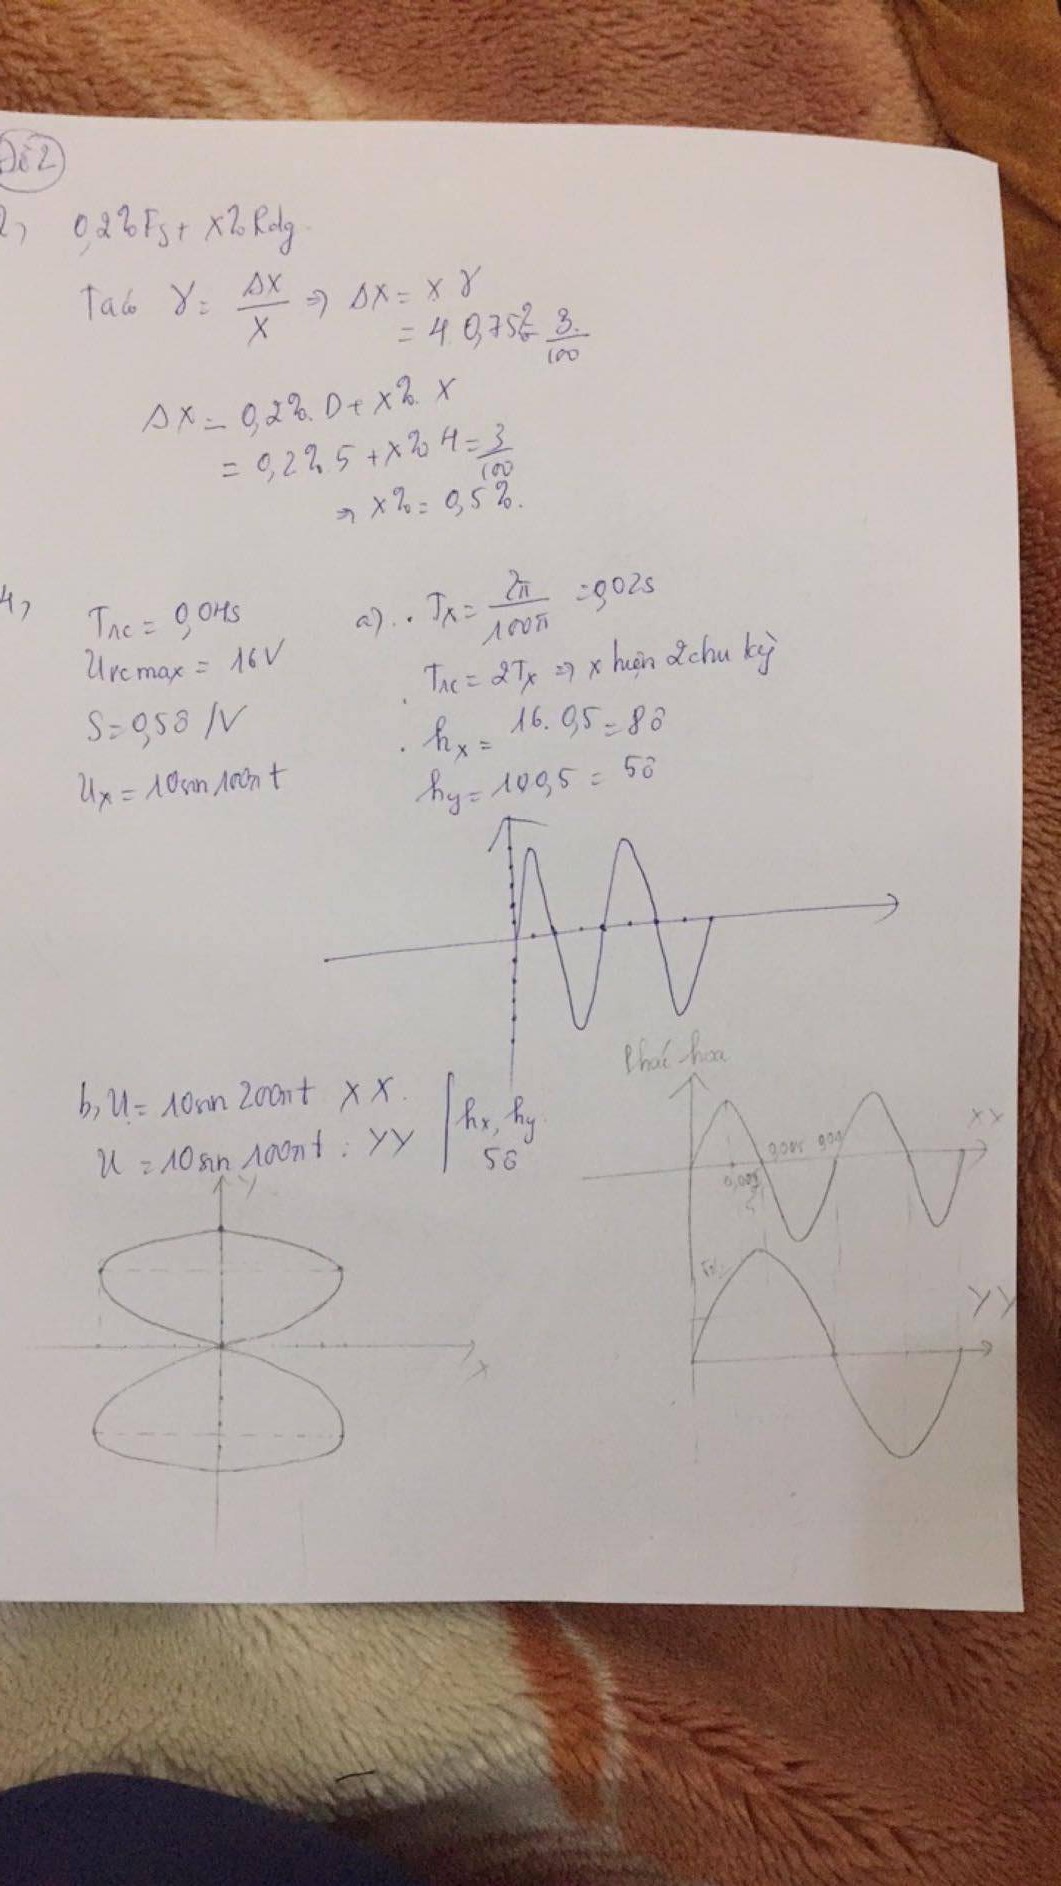 Đề 2
2, 0,2%Fs + x%Rdg
Ta có γ = ΔX/X ⇒ ΔX = X γ
= 4.0,75% = 3/100
ΔX = 0,2%.D + x%.X
= 0,2%.5 + x%.4 = 3/100
⇒ x% = 0,5%.
4,
Trc = 0,04s
Urcmax = 16V
S = 0,5ô/V
Ux = 10sin100πt
a). . Tx = 2π/100π = 0,02s
Trc = 2Tx ⇒ x hiện 2 chu kỳ
. hx = 16.0,5 = 8ô
hy = 10.0,5 = 5ô
b, U = 10sin 200πt XX.
U = 10sin 100πt : YY
hx, hy
5ô
Phác hoạ
XX
Y
X
YY